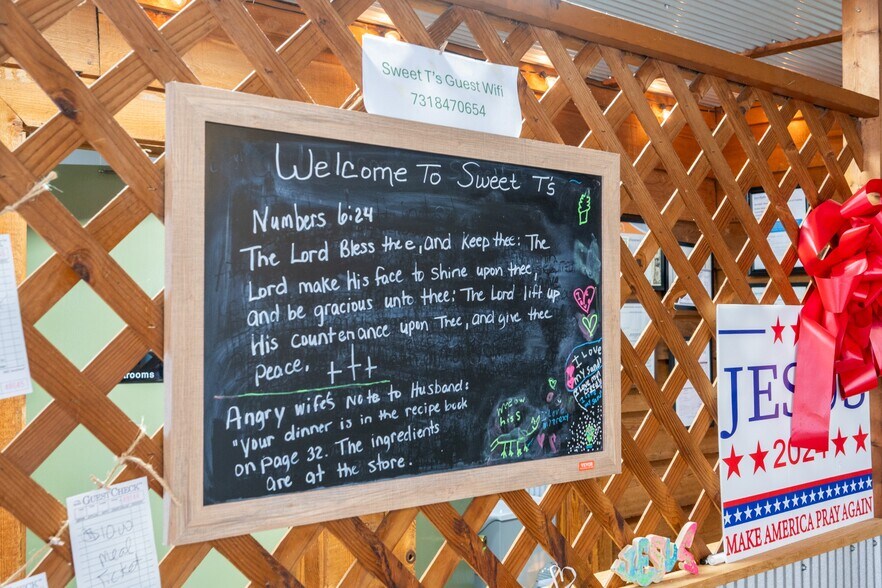 Sweet T's Guest Wifi
7318470654
Welcome To Sweet T's
Numbers 6:24
The Lord Bless thee, and keep thee: The
Lord make His face to shine upon thee,
and be gracious unto thee: The Lord lift up
His countenance upon Thee, and give thee
Peace.
Angry wife's Note to Husband:
"Your dinner is in the recipe book
on page 32. The ingredients
are at the store.
I Love
my
meow
hiss
GUEST CHECK
$10.00
meal
Ticket
ROOMS
JESUS
2024
MAKE AMERICA PRAY AGAIN